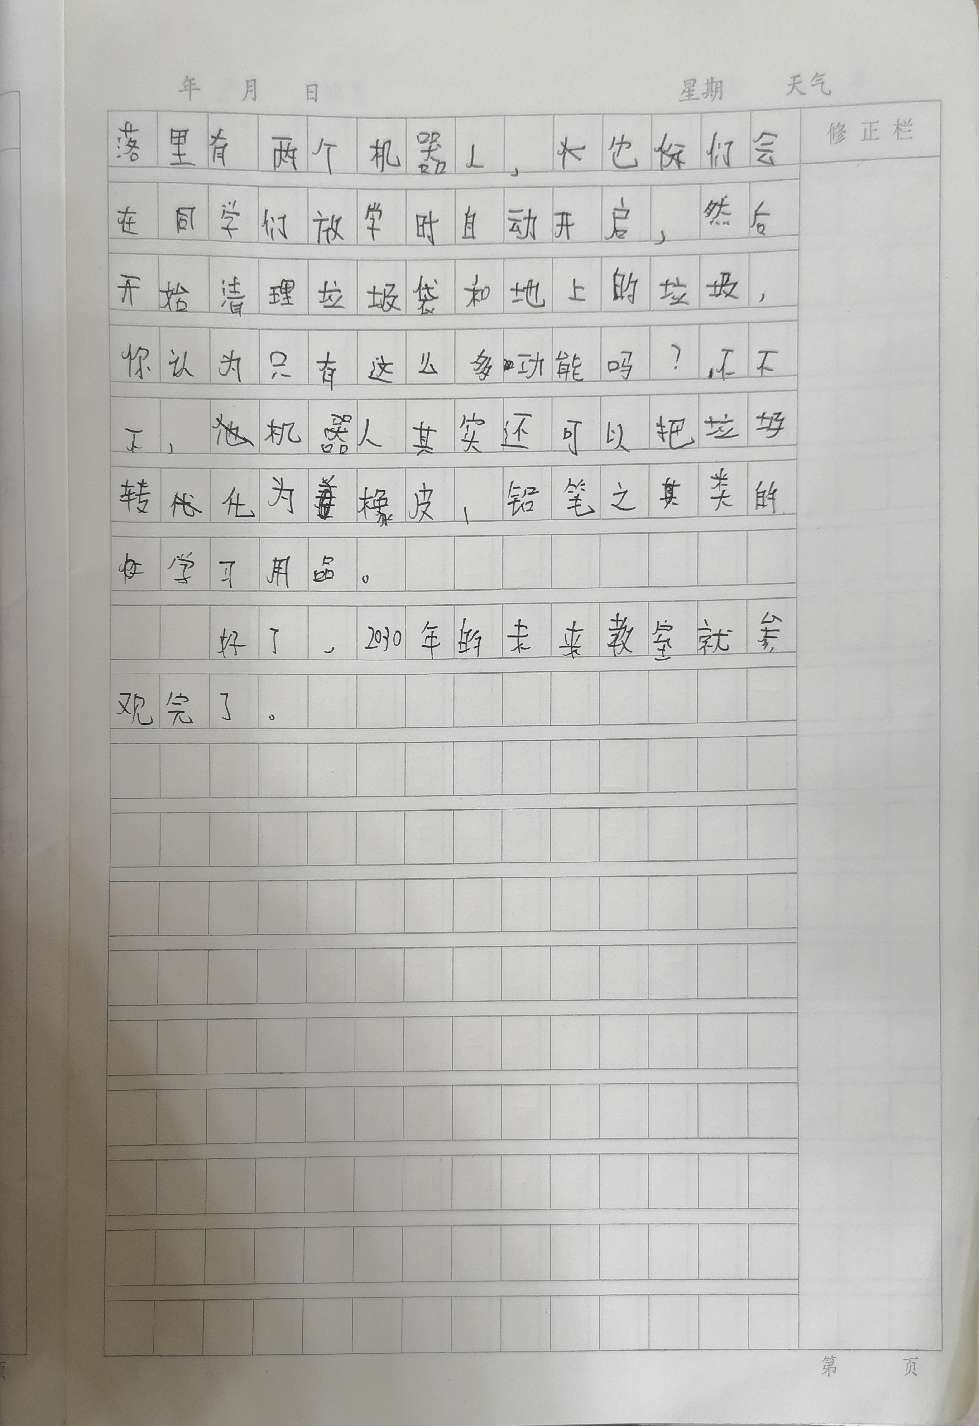 年 月 日 星期 天气
修正栏
落里有两个机器人，它们会
在同学们放学时自动开启，然后
开始清理垃圾袋和地上的垃圾，
你认为只有这么多功能吗？不不
不，机器人其实还可以把垃圾
转化为橡皮，铅笔之类的
学习用品。
好了，2030年的未来教室就参
观完了。
第 页